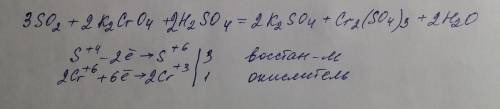 3SO₂ + 2K₂CrO₄ + 2H₂SO₄ = 2K₂SO₄ + Cr₂(SO₄)₃ + 2H₂O
S⁺⁴ - 2ē → S⁺⁶ | 3 восстан-ль
2Cr⁺⁶ + 6ē → 2Cr⁺³ | 1 окислитель